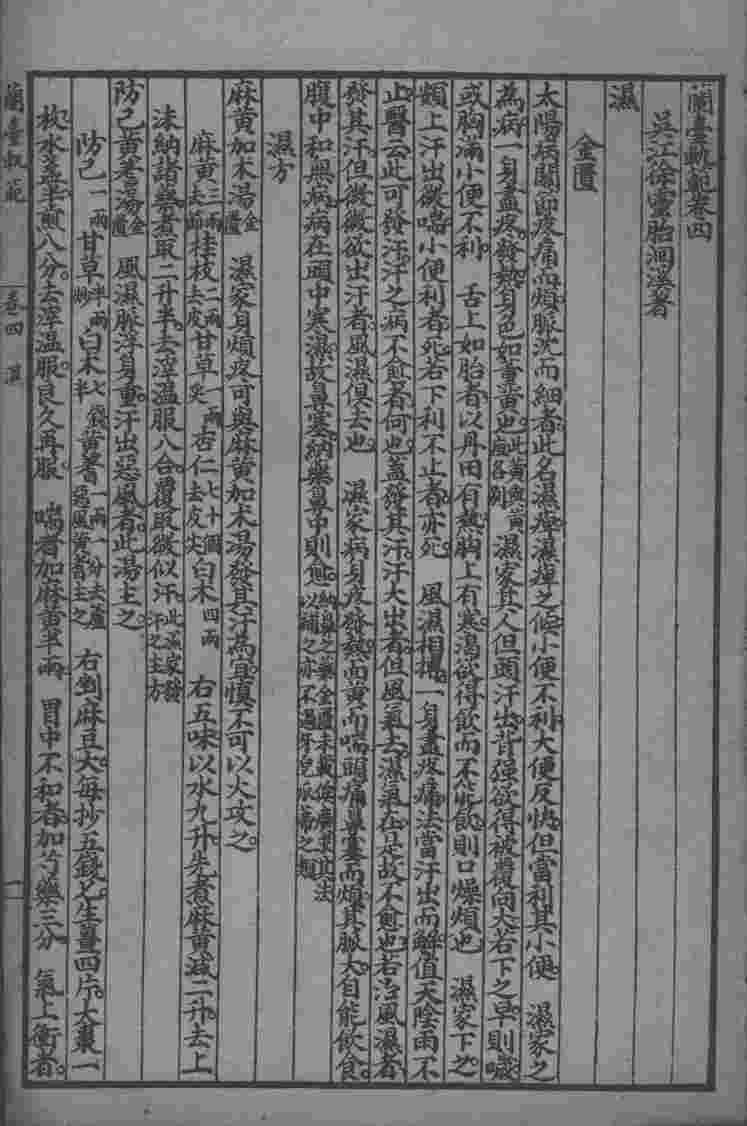 蘭臺軌範卷四
吳江徐靈胎洄溪著
濕
金匱
太陽病關節疼痛而煩脈沈而細者此名濕痺濕痺之候小便不利大便反快但當利其小便　濕家之
為病一身盡疼發熱身色如薰黃也此黃與黃疸各別　濕家其人但頭汗出背强欲得被覆向火若下之早則噦
或胸滿小便不利　舌上如胎者以丹田有熱胸上有寒渴欲得飲而不能飲則口燥煩也　濕家下之
額上汗出微喘小便利者死若下利不止者亦死　風濕相搏一身盡疼痛法當汗出而解值天陰雨不
止醫云此可發汗汗之病不愈者何也蓋發其汗汗大出者但風氣去濕氣在是故不愈也若治風濕者
發其汗但微微欲出汗者風濕俱去也　濕家病身疼發熱面黃而喘頭痛鼻塞而煩其脈大自能飲食
腹中和無病病在頭中寒濕故鼻塞納藥鼻中則愈納鼻之藥金匱未載後賢求其法以補之亦不過牙皂瓜蒂之類
濕方
麻黃加朮湯金匱　濕家身煩疼可與麻黃加朮湯發其汗為宜慎不可以火攻之
麻黃三兩去節桂枝二兩去皮甘草一兩炙杏仁七十個去皮尖白朮四兩　右五味以水九升先煮麻黃減二升去上
沫納諸藥煮取二升半去滓溫服八合覆取微似汗此濕家發汗之主方
防己黃耆湯金匱　風濕脈浮身重汗出惡風者此湯主之
防己一兩甘草半兩炒白朮七錢半黃耆一兩一分去蘆惡風黃耆主之　右剉麻豆大每抄五錢匕生薑四片大棗一
枚水盞半煎八分去滓溫服良久再服　喘者加麻黃半兩　胃中不和者加芍藥三分　氣上衝者
蘭臺軌範
卷四　濕
一